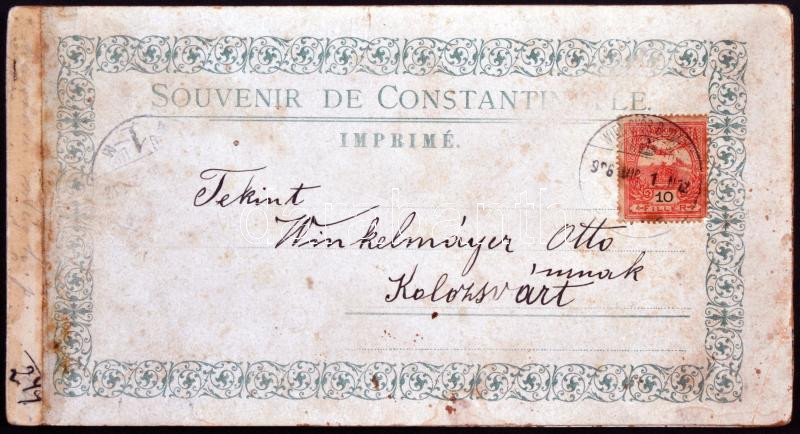 SOUVENIR DE CONSTANTINOPLE.
IMPRIMÉ.
10
FILLER
Tekint
Winkelmáyer Otto
úrnak
Kolozsvárt